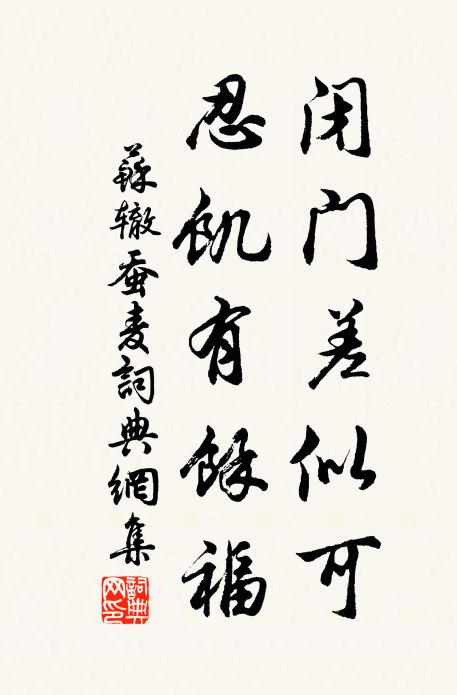 闭门差似可
忍飢有馀福
蘇辙蚕麦詞典網集
詞典网印